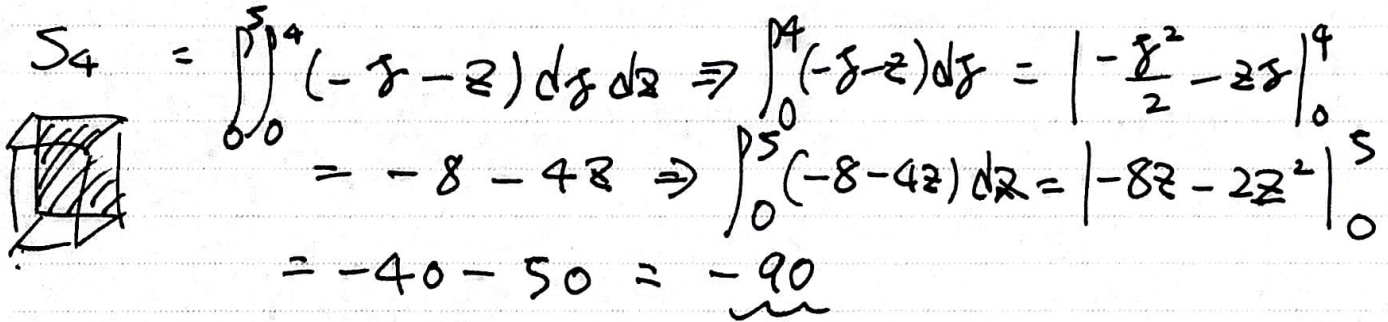 S₄ = ∫₀⁵∫₀⁴ (-y-z) dy dz ⇒ ∫₀⁴ (-y-z) dy = |-y²/2 - zy|₀⁴
= -8-4z ⇒ ∫₀⁵ (-8-4z) dz = |-8z-2z²|₀⁵
= -40-50 = -90